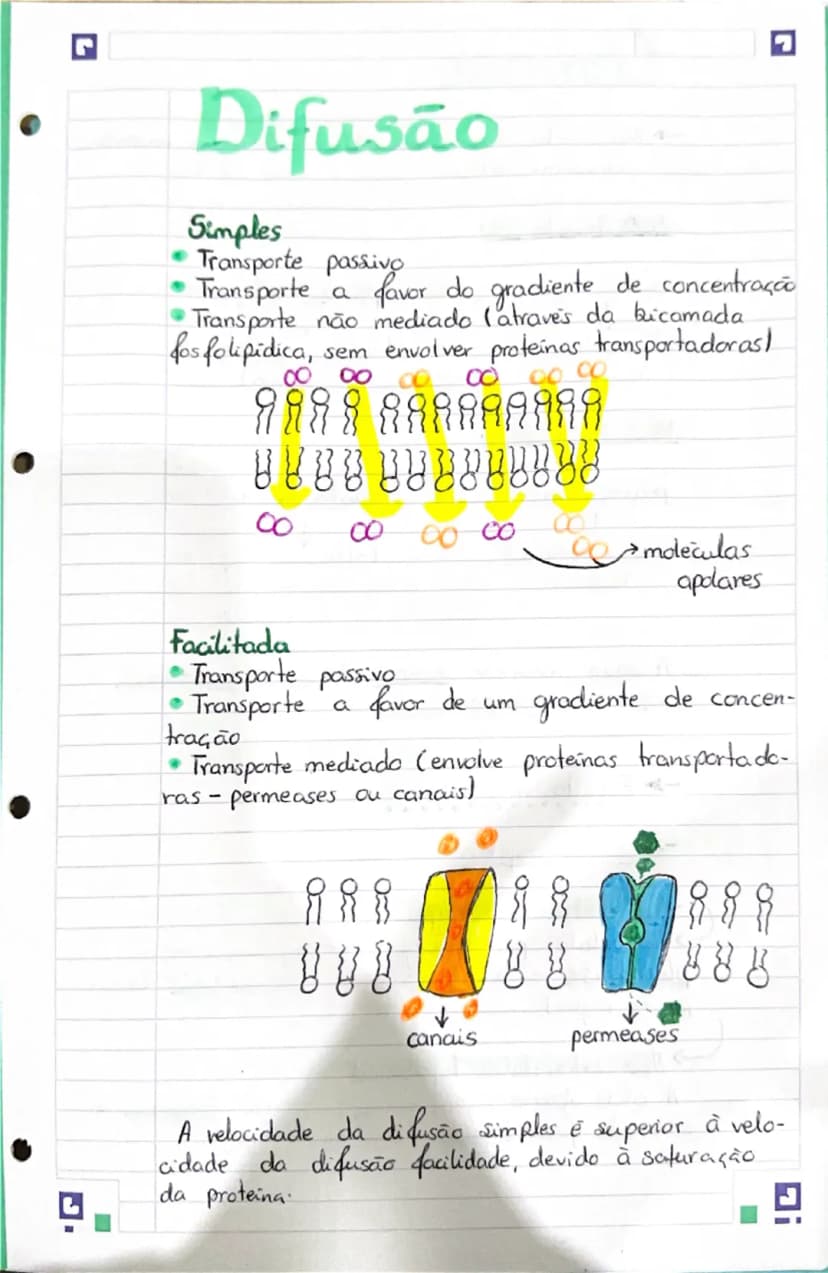 Difusão
Simples
• Transporte passivo
• Transporte a favor do gradiente de concentração
• Transporte não mediado (através da bicamada
fosfolipídica, sem envolver proteínas transportadoras)
→ moléculas
apolares
Facilitada
• Transporte passivo
• Transporte a favor de um gradiente de concen-
tração
• Transporte mediado (envolve proteínas transportado-
ras - permeases ou canais)
canais
permeases
A velocidade da difusão simples é superior à velo-
cidade da difusão facilidade, devido à saturação
da proteína.